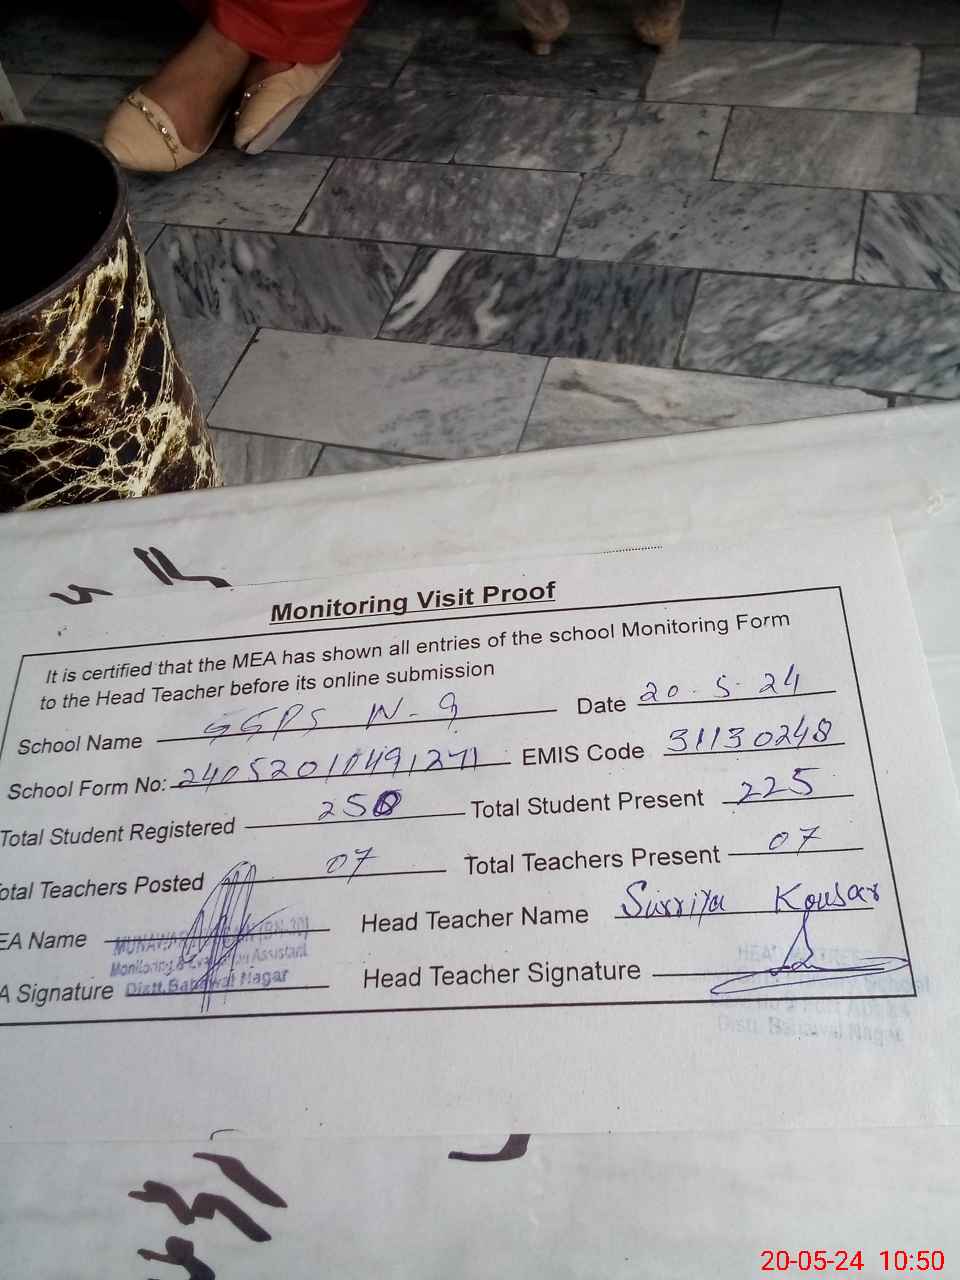 Monitoring Visit Proof
It is certified that the MEA has shown all entries of the school Monitoring Form
to the Head Teacher before its online submission
School Name GGPS W-9 Date 20-5-24
School Form No: 240520110491271 EMIS Code 31130248
Total Student Registered 250 Total Student Present 225
otal Teachers Posted 07 Total Teachers Present 07
EA Name Head Teacher Name Surriya Kousar
Monitoring & Evaluation Assistant
A Signature Distt. Bahawal Nagar Head Teacher Signature
Distt. Bahawal Nagar
20-05-24 10:50